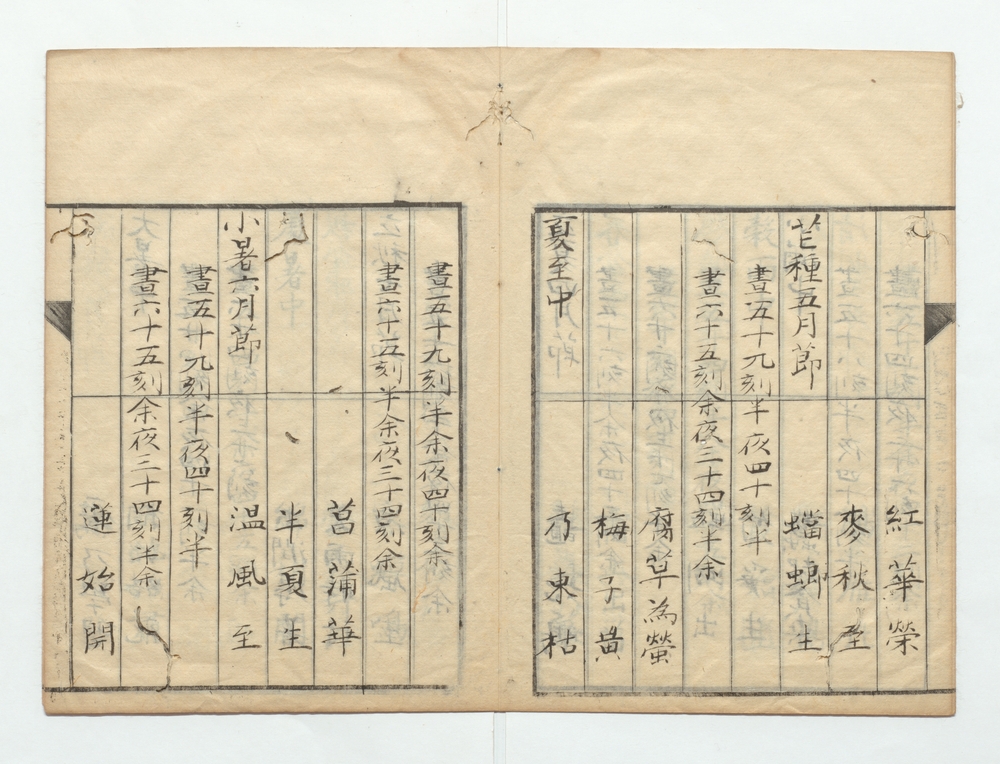 紅華榮
麥秋至
芒種五月節
蟷螂生
晝五十九刻半夜四十刻半
晝六十五刻余夜三十四刻半余
腐草為螢
梅子黄
夏至中
乃東枯
晝五十九刻半余夜四十刻余
晝六十五刻半余夜三十四刻余
菖蒲華
半夏生
小暑六月節
温風至
晝五十九刻半夜四十刻半
晝六十五刻余夜三十四刻半余
蓮始開